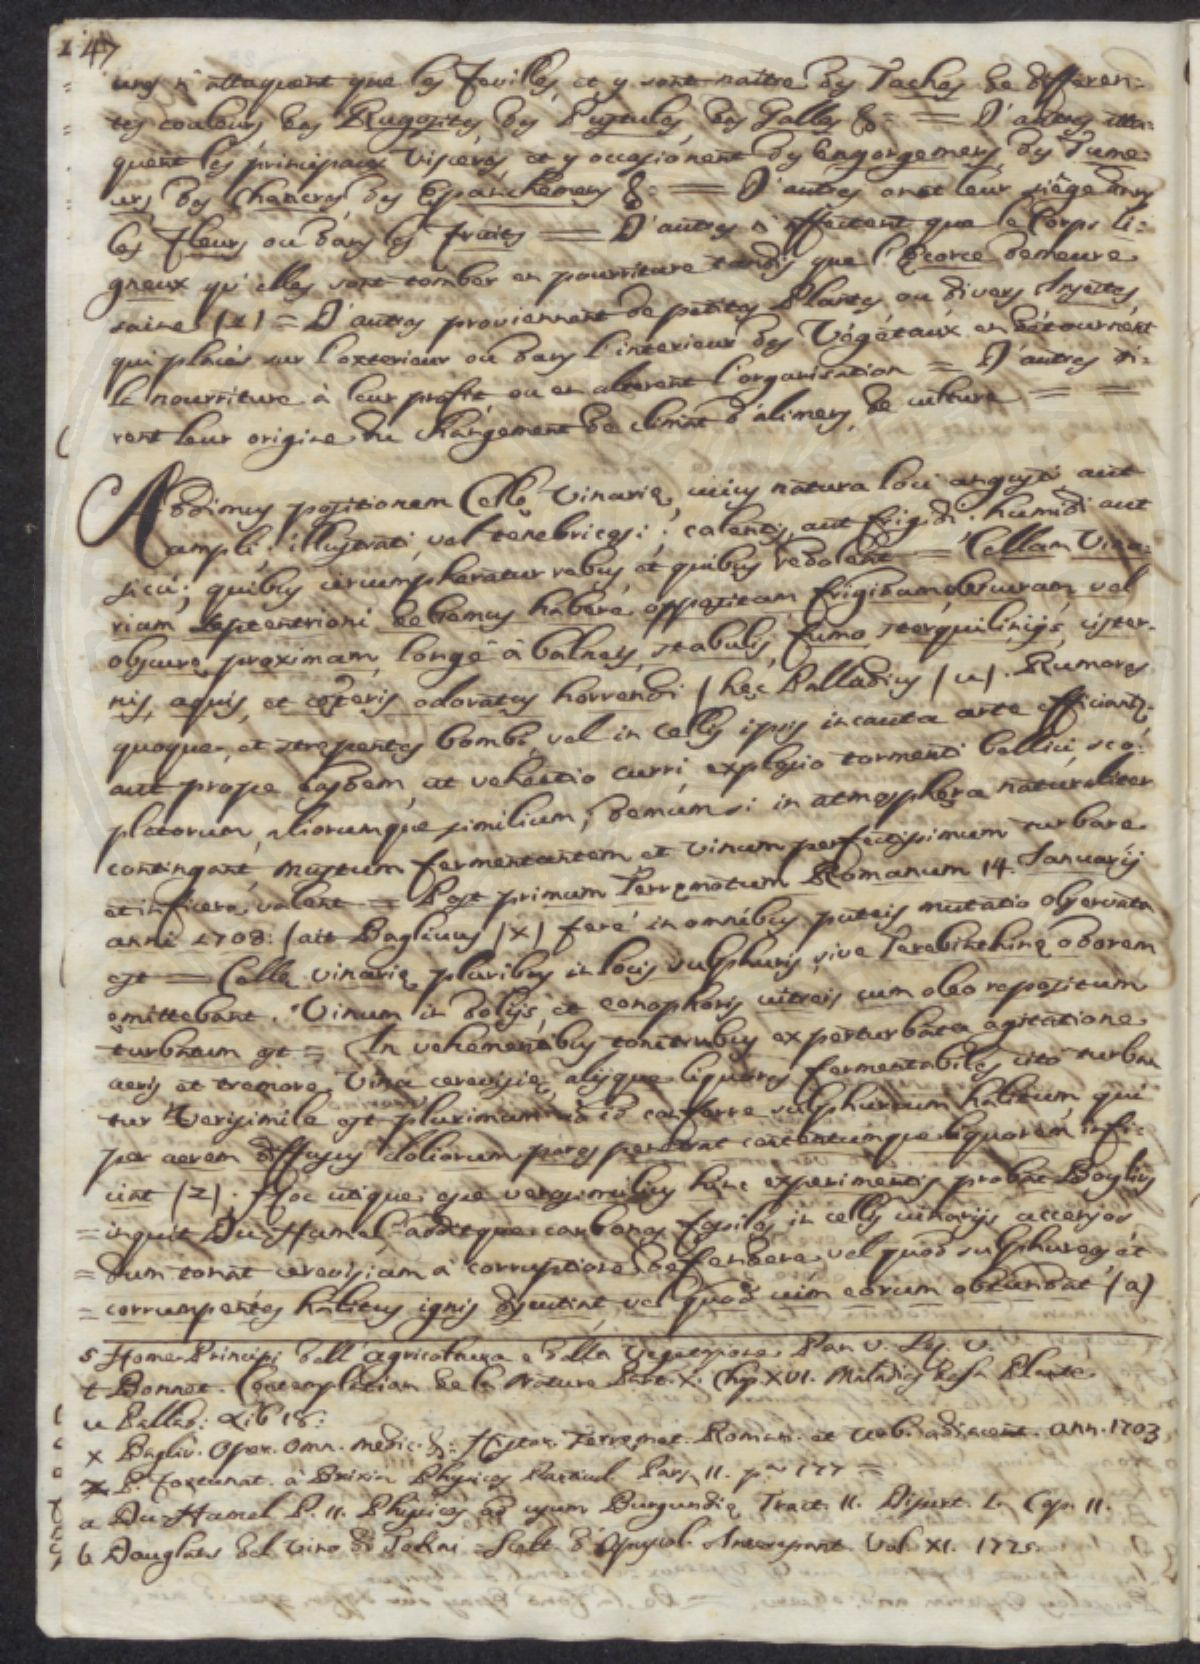 147
unes n'attaquent que les Feuilles, et y font naître des Taches de differen=
tes couleurs des Rugosites, des Pustules, des Galles &: = D'autres atta=
quent les principaux Visceres, et y occasionent des Engorgemens, des Tume=
urs des Chancres, des Epanchemens &: = D'autres ont leur siège dans
les Fleurs ou dans les Fruits = D'autres n'affectent que le Corps li=
gneux qu'elles font tomber en pourriture tandis que l'Ecorce demeure
saine (t) = D'autres proviennent de petites Plantes, ou divers Insectes,
qui placés sur l'exterieur ou dans l'interieur des Végétaux en détournent
le nourriture à leur profit, ou en alterent l'organisation = D'autres ti=
rent leur origine du changement de climat d'alimens, de culture = =
Addimus positionem Cellę Vinarię, cuius natura loci angusti, aut
ampli; illustrati, vel tenebricosi; calentis, aut frigidi; humidi aut
sicci; quibus circumpheratur rebus, et quibus redolent = Cellam Vina=
riam Septentrioni debemus habere oppositam, frigidam, obscuram, vel
obscurę proximam, longè à balneis, stabulis, fumo, sterquiliniis, cister=
nis, aquis, et cęteris odoratus horrendi (hęc Palladius (u). Rumores
quoque, et strepentes bombi, vel in cellis ipsis incauta arte efficiantur,
aut prope easdem, ut vehentio curri, explosio tormenti bellici, sco=
pletorum, aliorumque similium; demum si in atmosphęra naturaliter
contingant, mustum fermentantem et vinum perfectissimum turbare
et inficere valent = Post primum Terręmotum Romanum 14. Januarij
anni 1703: (ait Baglivus (x) ferè in omnibus puteis mutatio observata
est = Cellę vinarię pluribus in locis sulphuris, sive Terebinthinę odorem
emittebant. Vinum in dolijs, et eonophoris vitreis cum oleo repositum
turbatum est = In vehementibus tonitrubus ex perturbata agitatione
aeris et tremore, Vina cerevisię, alijque liquores fermentabiles citò turban
tur Verisimile est plurimum ad id conferre sulphureum halitum, qui
per aerem diffusus doliorum poros penetrat contentumque liquorem infi=
ciat (z). Hoc utique esse verosimilius hinc experimentis probat Boylius
= inquit Du-Hamel, additque carbones fossiles in cellis vinarijs accensos
= dum tonat cerevisiam à corruptione defendere, vel quod sulphureos et
= corrumpentes halitus ignis discutiat, vel quod vim eorum obtundat (a)
s Home Principj dell'agricoltura e della Vegetazione Par. V. Sez. V.
t Bonnet. Contemplation de la Nature Part. X. Chap. XVI. Maladies des Plante
u Pallad: Lib 18:
x Bagliv. Oper. Omn. Medic. &: Histor. Terręmot. Roman. et Urb. adjacent. ann. 1703
z P. Fortunat. à Brixia Physices Particul. Pars II. p.a 177 =
a Du-Hamel P. II. Phisices ad usum Burgundię Tract. II. Disert. I. Cap. II.
b Douglas del Vino di Tokai. Scelt. d'Opuscol. Interessant. Vol. XI. 1775.